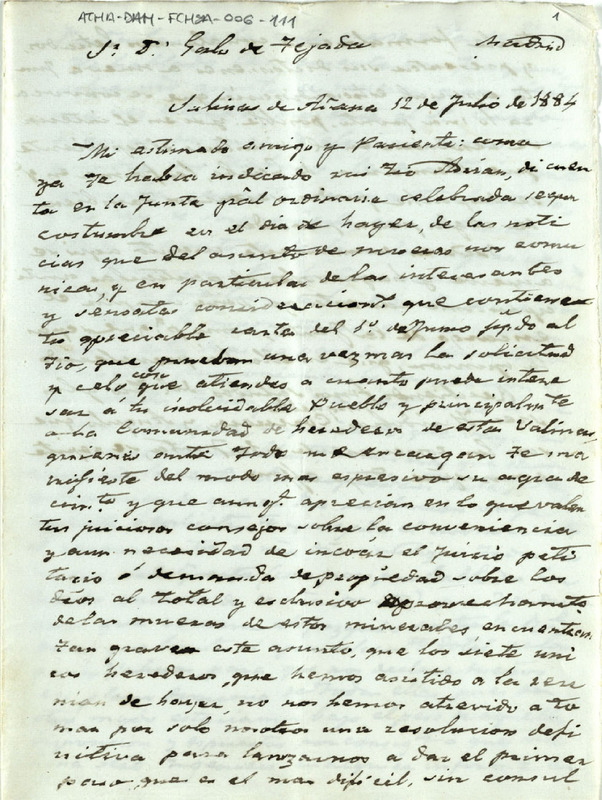 ATHA-DAH-FCHSA-006-111
1
Sr. Dn. Galo de Tejada Madrid
Salinas de Añana 12 de Julio de 1884
Mi estimado amigo y Pariente: como
ya te habia indicado mi tio Adrian, di cuen
ta en la Junta pral ordinaria celebrada segun
costumbre en el dia de hayer, de las noti
cias que del asunto de mueras nos comu
nicas, y en particular de las interesantes
y sensatas consideraciones que contiene
tu apreciable carta del 1º. de Junio al
tio, que prueban una vez mas la solicitud
y celo con que atiendes a cuanto puede intere
sar á tu inolvidable Pueblo y principalmte
a la Comunidad de herederos de estas Salinas,
quienes ante todo me encargan te ma
nifieste del modo mas espresivo su agrade
cimto y que aunq. aprecian en lo que valen
tus juiciosos consejos sobre la conveniencia
y aun necesidad de incoar el Juicio peti
torio ó demanda de propiedad sobre los
dros al total y esclusivo aprovechamto
de las mueras de estos minerales encuentran
tan grave este asunto, que los siete uni
cos herederos, que hemos asistido a la reu
nion de hayer, no nos hemos atrevido a to
mar por solo nosotros una resolucion defi
nitiva para lanzarnos a dar el primer
paso, que es el mas dificil, sin consul